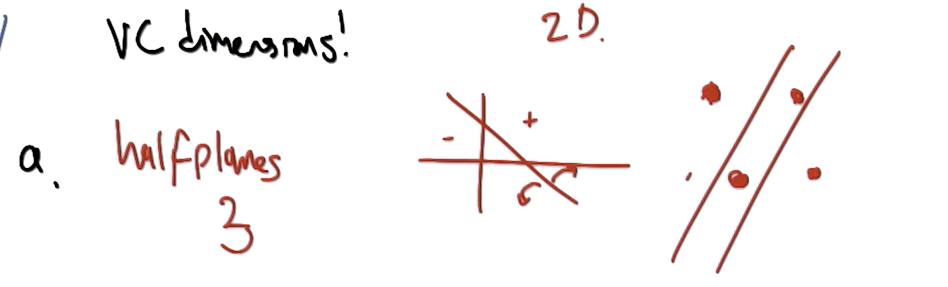 VC dimensions!
2D.
a. halfplanes
3
- +